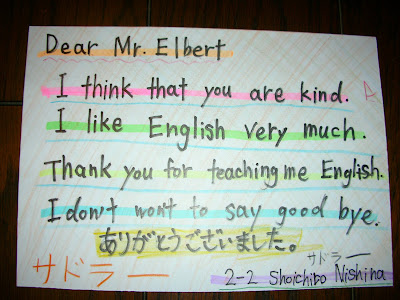 Dear Mr. Elbert
I think that you are kind.
A
I like English very much.
Thank you for teaching me English.
I don't wont to say good bye.
ありがとうございました。
サドラー
サドラー
2-2 Shoichibo Nishina